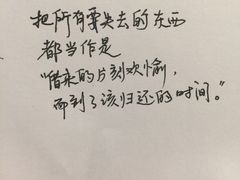 把所有要失去的东西
都当作是
“借来的片刻欢愉，
而到了该归还的时间。”